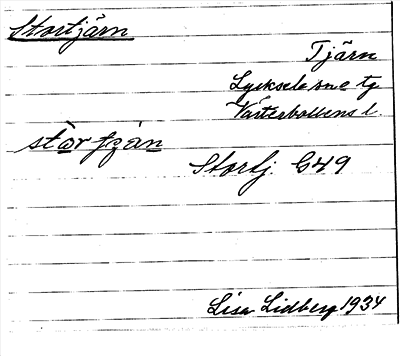 Stortjärn
Tjärn
Lycksele sne tg
Västerbottens l.
Stortj. G49
Lisa Lidberg 1934